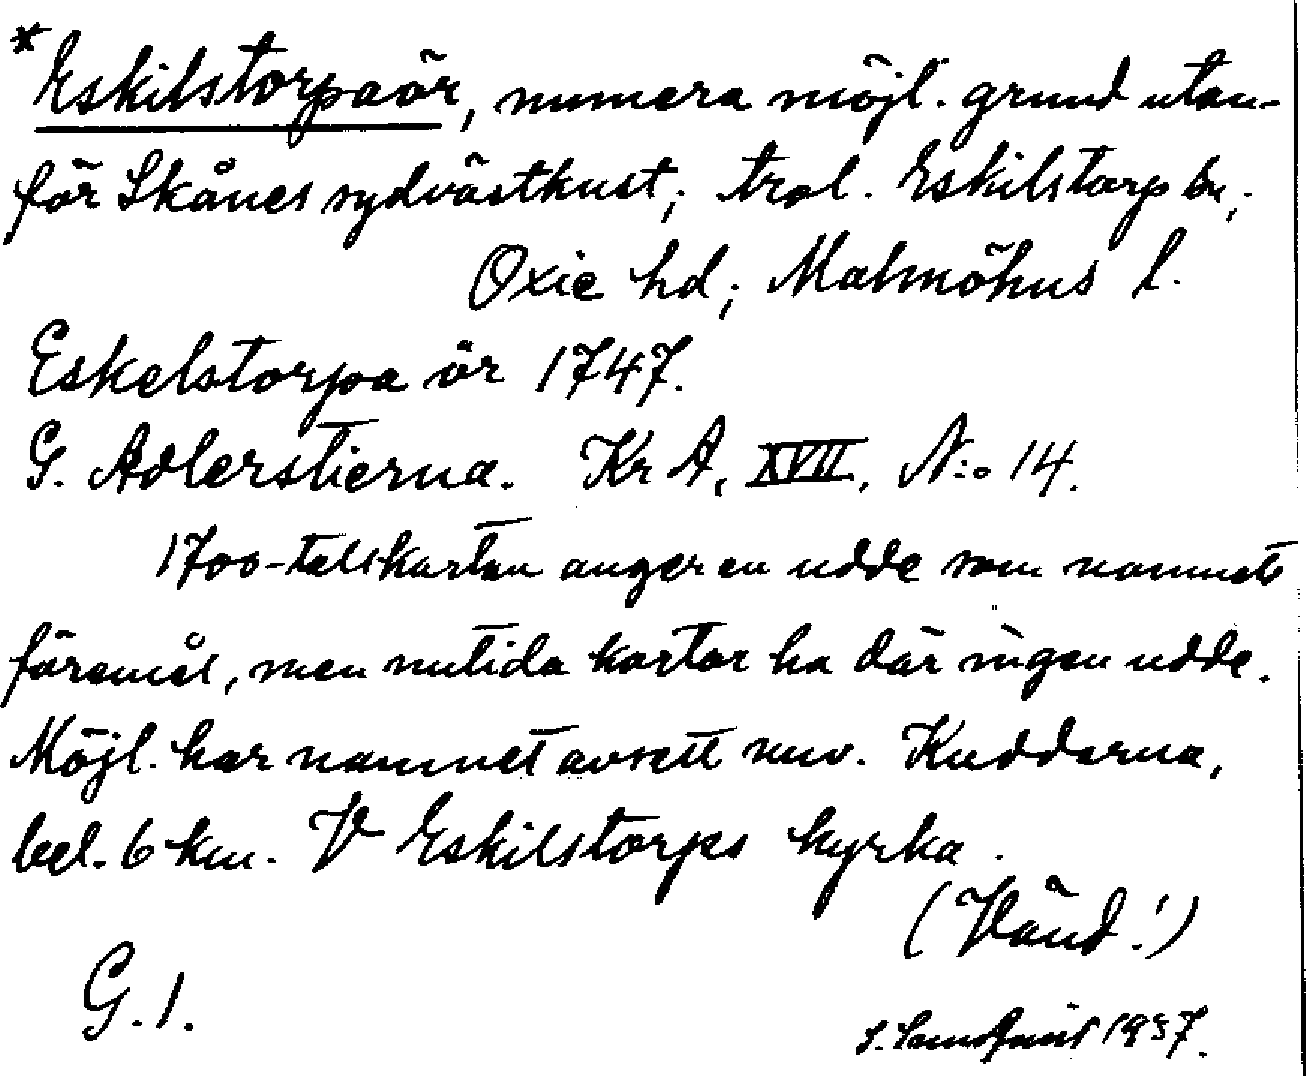 *Eskilstorpaör, numera möjl. grund utan-
för Skånes sydvästkust; trol. Eskilstorp by;
Oxie hd; Malmöhus l.
Eskelstorpa ör 1747.
G. Adlerstierna. Kr A, XVII, N:o 14.
1700-talskartan anger en udde som namnets
föremål, men nutida kartor ha där ingen udde.
Möjl. har namnet avsett nuv. Kuddarna,
bel. 6 km. V Eskilstorps kyrka.
(Vänd!)
G. 1.
1937.